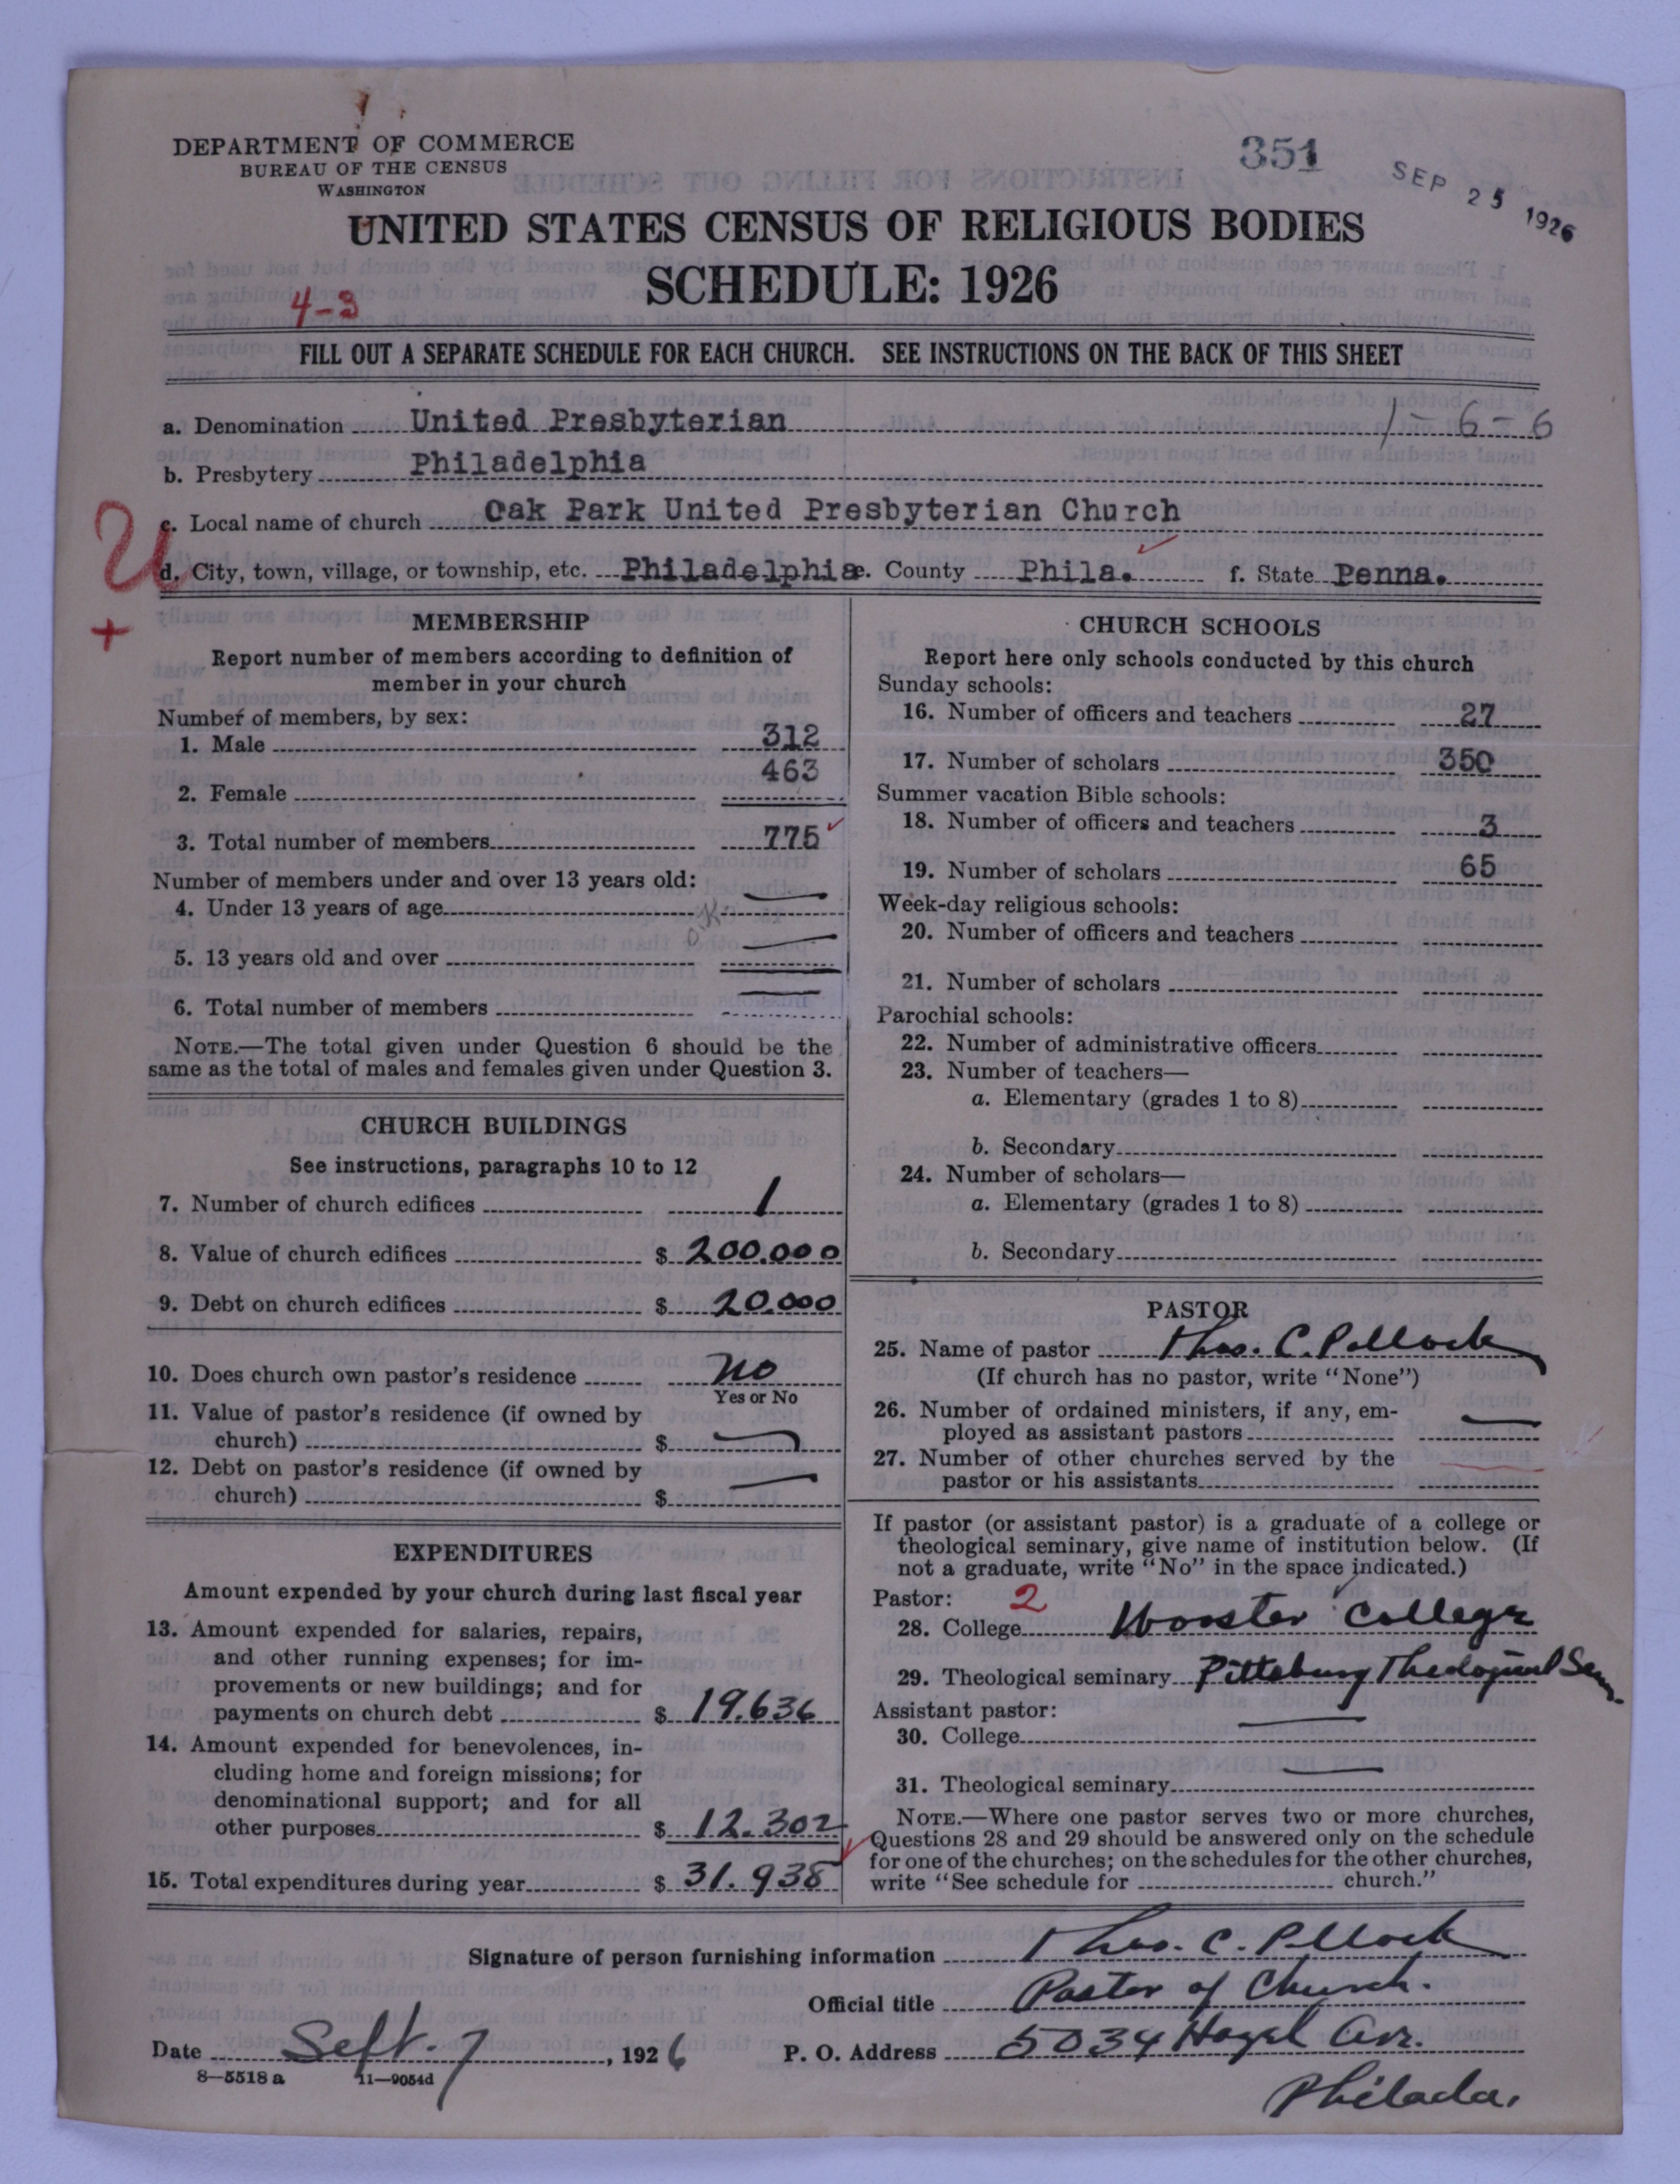 DEPARTMENT OF COMMERCE
BUREAU OF THE CENSUS
WASHINGTON
351
SEP 25 1926
UNITED STATES CENSUS OF RELIGIOUS BODIES
SCHEDULE: 1926
4-3
FILL OUT A SEPARATE SCHEDULE FOR EACH CHURCH. SEE INSTRUCTIONS ON THE BACK OF THIS SHEET
a. Denomination United Presbyterian 1-6-6
b. Presbytery Philadelphia
c. Local name of church Oak Park United Presbyterian Church
U
d. City, town, village, or township, etc. Philadelphia e. County Phila. f. State Penna.
+
MEMBERSHIP
Report number of members according to definition of
member in your church
Number of members, by sex:
1. Male 312
2. Female 463
3. Total number of members 775
Number of members under and over 13 years old:
4. Under 13 years of age —
OK
5. 13 years old and over —
6. Total number of members —
NOTE.—The total given under Question 6 should be the
same as the total of males and females given under Question 3.
CHURCH BUILDINGS
See instructions, paragraphs 10 to 12
7. Number of church edifices 1
8. Value of church edifices $ 200.000
9. Debt on church edifices $ 20.000
10. Does church own pastor's residence no
Yes or No
11. Value of pastor's residence (if owned by
church) $ —
12. Debt on pastor's residence (if owned by
church) $ —
EXPENDITURES
Amount expended by your church during last fiscal year
13. Amount expended for salaries, repairs,
and other running expenses; for im-
provements or new buildings; and for
payments on church debt $ 19.636
14. Amount expended for benevolences, in-
cluding home and foreign missions; for
denominational support; and for all
other purposes $ 12.302
15. Total expenditures during year $ 31.938
CHURCH SCHOOLS
Report here only schools conducted by this church
Sunday schools:
16. Number of officers and teachers 27
17. Number of scholars 350
Summer vacation Bible schools:
18. Number of officers and teachers 3
19. Number of scholars 65
Week-day religious schools:
20. Number of officers and teachers
21. Number of scholars
Parochial schools:
22. Number of administrative officers
23. Number of teachers—
a. Elementary (grades 1 to 8)
b. Secondary
24. Number of scholars—
a. Elementary (grades 1 to 8)
b. Secondary
PASTOR
25. Name of pastor Thos. C. Pollock
(If church has no pastor, write "None")
26. Number of ordained ministers, if any, em-
ployed as assistant pastors —
27. Number of other churches served by the
pastor or his assistants
If pastor (or assistant pastor) is a graduate of a college or
theological seminary, give name of institution below. (If
not a graduate, write "No" in the space indicated.)
Pastor: 2
28. College Wooster College
29. Theological seminary Pittsburg Theological Sem.
Assistant pastor:
30. College —
31. Theological seminary —
NOTE.—Where one pastor serves two or more churches,
Questions 28 and 29 should be answered only on the schedule
for one of the churches; on the schedules for the other churches,
write "See schedule for church."
Signature of person furnishing information Thos. C. Pollock
Official title Pastor of Church.
Date Sept. 7, 1926 P. O. Address 5034 Hazel Ave.
8—5518 a 11—9054d
Philada.